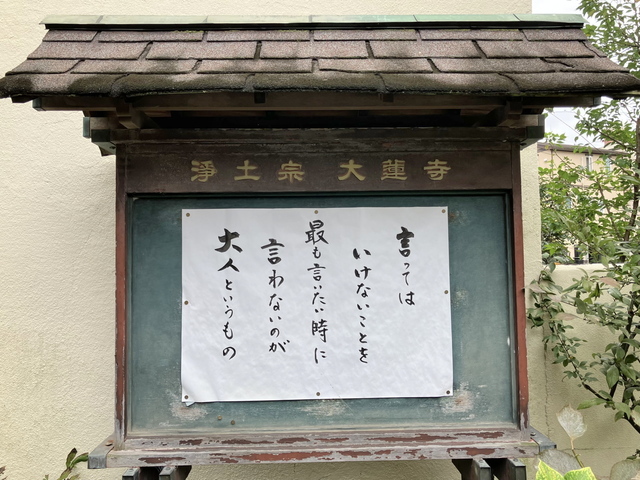 淨土宗 大蓮寺
言っては
いけないことを
最も言いたい時に
言わないのが
大人というもの